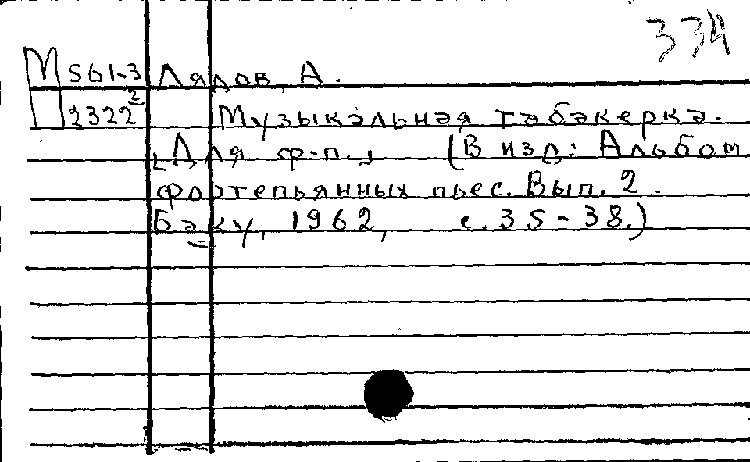 334
М 561-3 Лядов, А.
П 2322² Музыкальная табакерка.
[Для ф-п.] (В изд: Альбом
фортепьянных пьес. Вып. 2.
Баку, 1962, с. 35-38.)